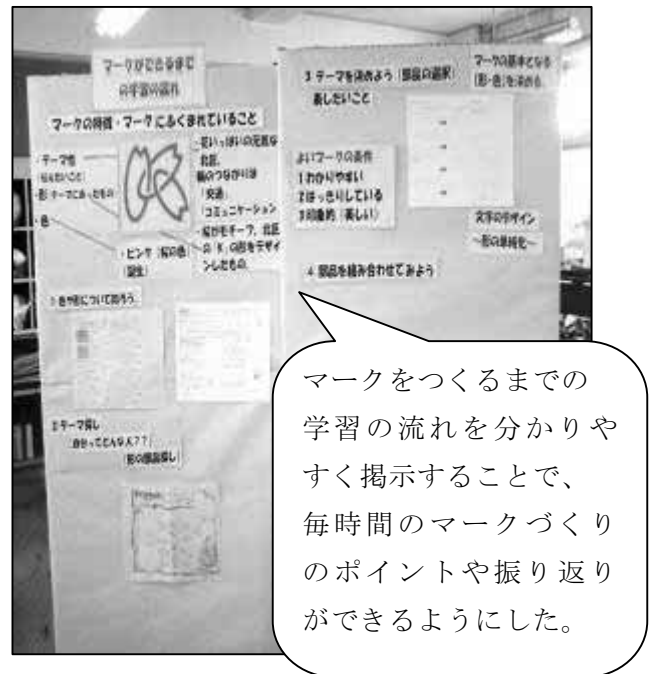 マークができるまで
の学習の流れ
マークの特徴・マークにふくまれていること
・テーマ性
(伝えたいこと)
・形 テーマにあったもの
・色
・花いっぱいの元気な
北区。
輪のつながりは
「交通」
「コミュニケーション」
・桜がモチーフ。北区
の「K」の形をデザイ
ンしたもの。
・ピンク「桜の色」
(誕生)
1 色や形について知ろう
2 テーマ探し
自分ってどんな人??
形の部品探し
3 テーマを決めよう(部品の選択)
表したいこと
マークの基本となる
(形・色)を決める。
よいマークの条件
1 わかりやすい
2 はっきりしている
3 印象的(美しい)
文字のデザイン
~形の単純化~
4 部品を組み合わせてみよう
マークをつくるまでの
学習の流れを分かりや
すく掲示することで、
毎時間のマークづくり
のポイントや振り返り
ができるようにした。